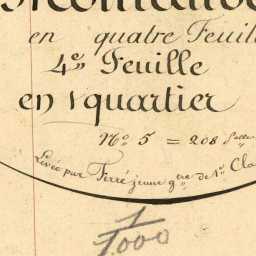 en quatre Feuill
4e Feuille
en 1 quartier
No. 5 = 208
Levée par Ferré jeune gre de 1re Cla
1/1000